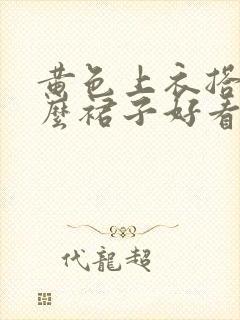 黄色上衣搭
麼裙子好看
代龍超